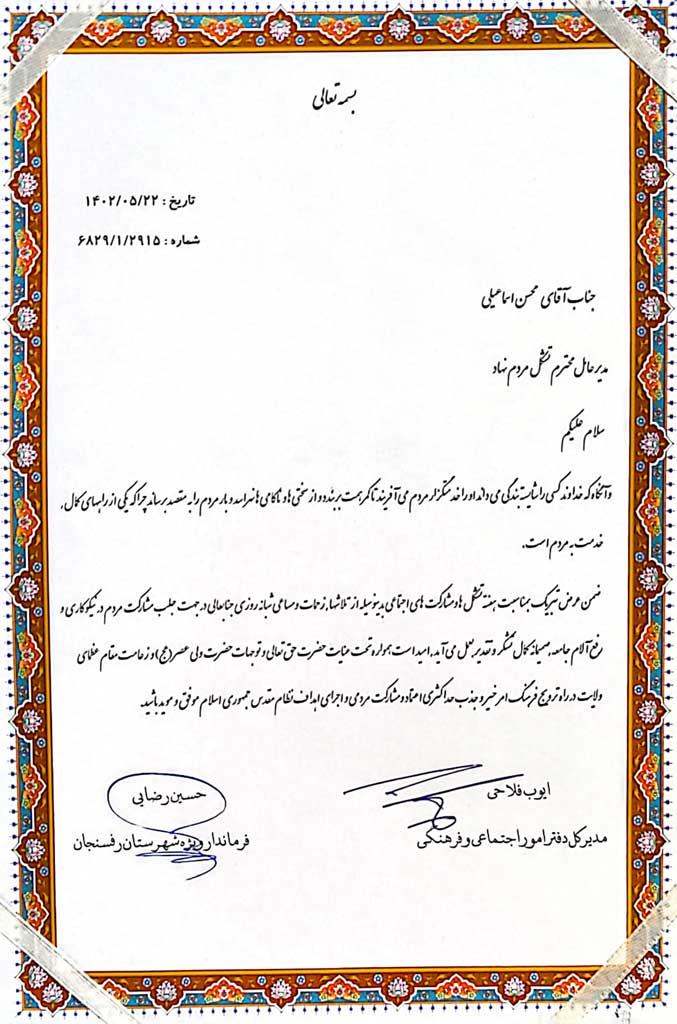 بسمه تعالی
تاریخ : ۱۴۰۲/۰۵/۲۲
شماره : ۶۸۲۹/۱/۲۹۱۵
جناب آقای محسن اسماعیلی
مدیرعامل محترم تشکل مردم نهاد
سلام علیکم
و آنگاه که خداوند کسی را شایسته بندگی می داند او را خدمتگزار مردم می آفریند تا کمر همت بر بندد و از سختی ها و ناکامی ها نهراسد و بار مردم را به مقصد برساند چرا که یکی از راههای کمال,
خدمت به مردم است.
ضمن عرض تبریک بمناسبت هفته تشکل ها و مشارکت های اجتماعی بدینوسیله از تلاشها, زحمات و مساعی شبانه روزی جنابعالی در جهت جلب مشارکت مردم در نیکوکاری و
رفع آلام جامعه, صمیمانه کمال تشکر و تقدیر بعمل می آید. امید است همواره تحت عنایت حضرت حق تعالی و توجهات حضرت ولی عصر(عج) و زعامت مقام عظمای
ولایت در راه ترویج فرهنگ امر خیر و جذب حداکثری اعتماد و مشارکت مردمی و اجرای اهداف نظام مقدس جمهوری اسلام موفق و موید باشید.
ایوب فلاحی
مدیرکل دفتر امور اجتماعی و فرهنگی
حسین رضایی
فرماندار ویژه شهرستان رفسنجان